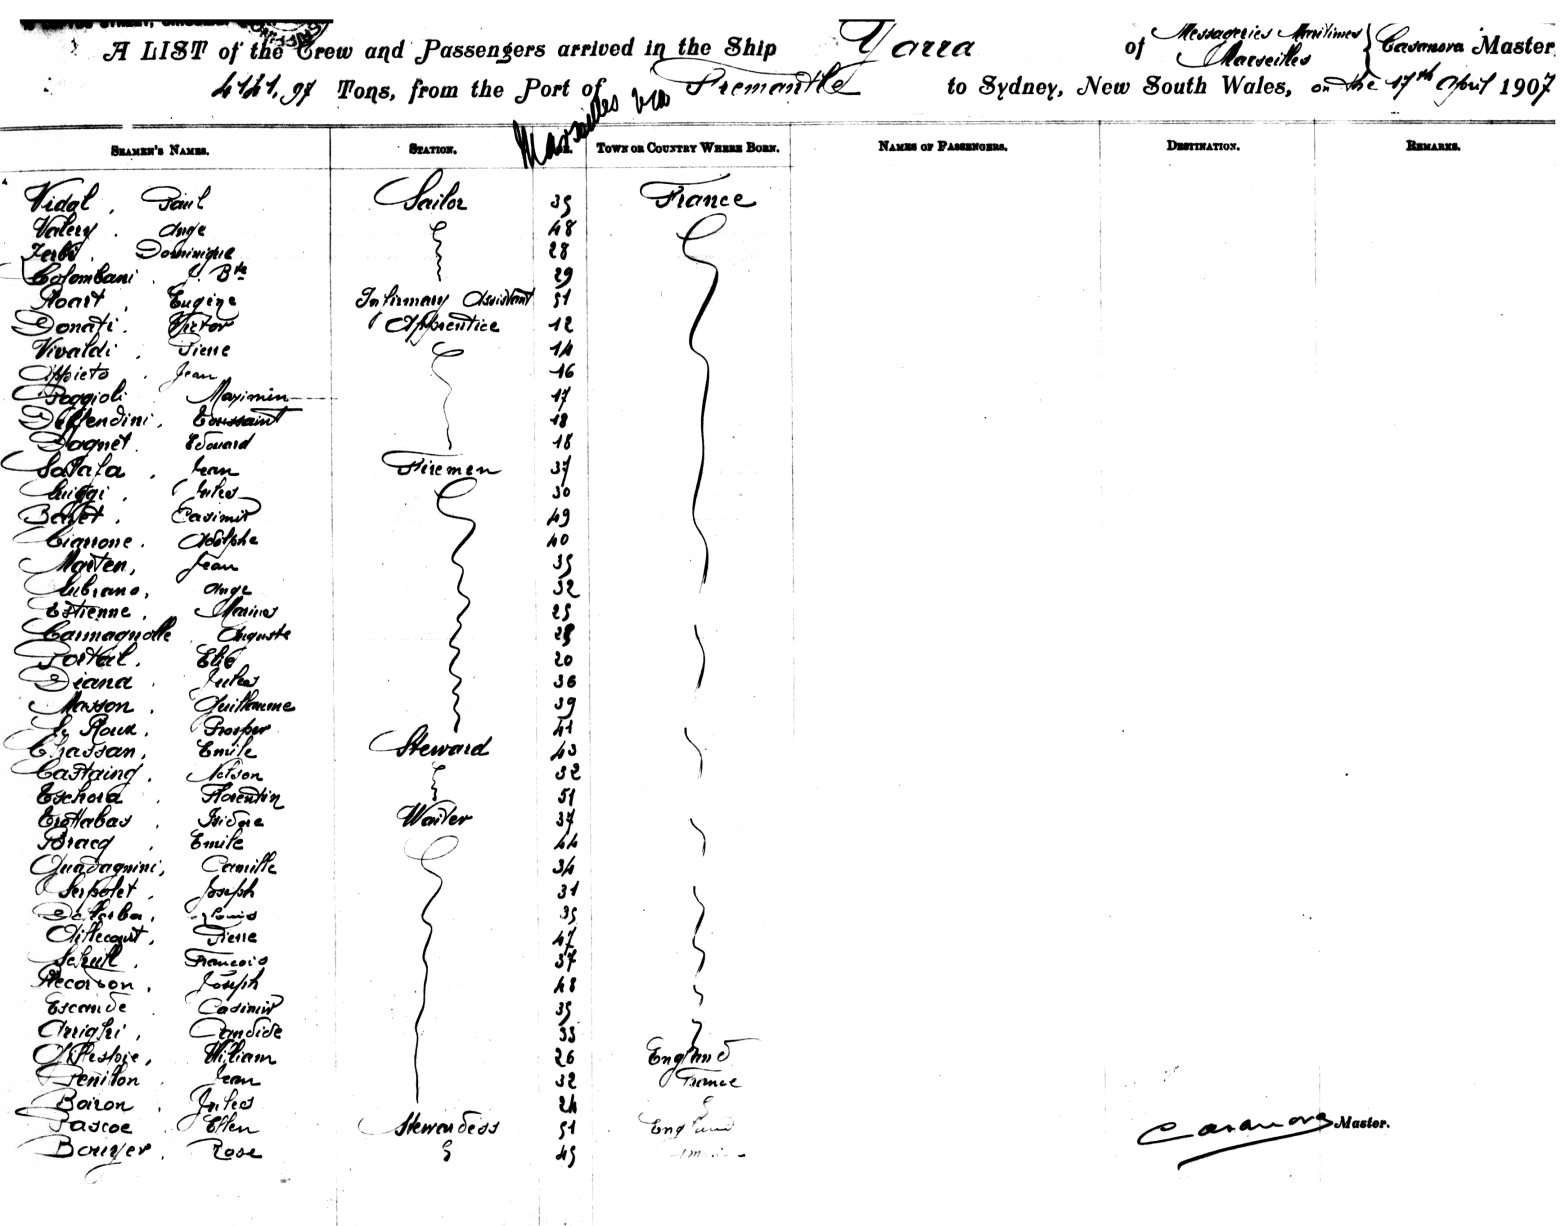 A LIST of the Crew and Passengers arrived in the Ship Yarra of Messageries Maritimes Marseilles } Casanova Master
4141.97 Tons, from the Port of Marseilles via Fremantle to Sydney, New South Wales, on the 17th April 1907
SEAMEN'S NAMES. STATION. TOWN OR COUNTRY WHERE BORN. NAMES OF PASSENGERS. DESTINATION. REMARKS.
Vidal, Paul Sailor 35 France
Valery, Ange 48
Dominique 28
Colombani J. Bte 29
Eugène Infirmary Assistant 51
Donati, Victor Apprentice 12
Vivaldi, Pierre 14
Appieto, Jean 16
Poggioli Maximin 17
Deffendini, Toussaint 18
Edouard 18
Jean Firemen 37
Luiggi, Jules 30
Casimir 49
Adolphe 40
Marten, Jean 35
Lubrano, Ange 32
Estienne, Marius 25
Carmagnolle Auguste
Portal, Elie 20
Diana, Jules 36
Masson, Guillaume 39
Le Roux, Prosper 41
Chassan, Emile Steward 43
Castaing, 32
Eschora, Florentin 51
Isidore Waiter 37
Bracq, Emile 44
Guadagnini, Camille 34
Serpolet, Joseph 31
Louis 35
Pierre 47
François 37
Joseph 48
Escande Casimir 35
Arrighi, Candide 33
Gillespie, William 26 England
Penilon Jean 32 France
Boiron, Jules 24
Pascoe Ellen Stewardess 51 England
Bouyer, Rose 45
Casanova Master.